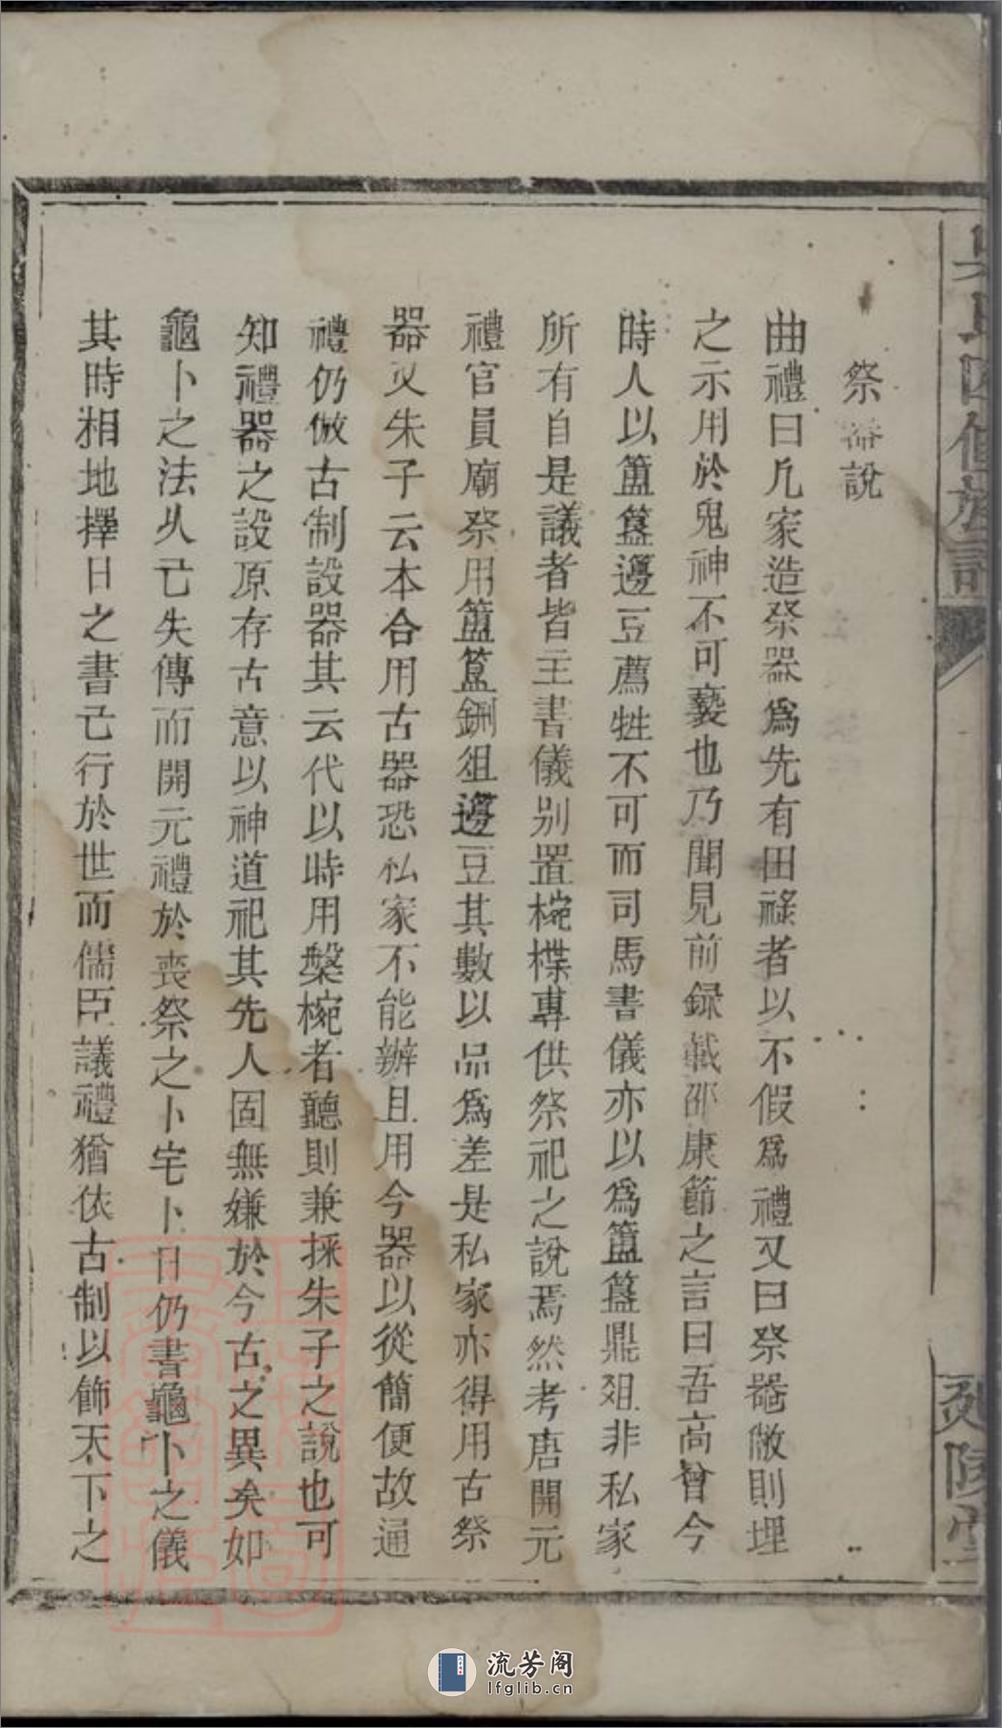 祭器說
曲禮曰凢家造祭器爲先有田祿者以不假爲禮又曰祭器敝則埋
之示用於鬼神不可褻也乃聞見前録載邵康節之言曰吾高曾今
時人以簠簋籩豆薦牲不可而司馬書儀亦以爲簠簋鼎俎非私家
所有自是議者皆主書儀別置椀楪專供祭祀之說焉然考唐開元
禮官員廟祭用簠簋鉶俎籩豆其數以品爲差是私家亦得用古祭
器又朱子云本合用古器恐私家不能辦且用今器以從簡便故通
禮仍倣古制設器其云代以時用槃椀者聽則兼採朱子之說也可
知禮器之設原存古意以神道祀其先人固無嫌於今古之異矣如
龜卜之法乆已失傳而開元禮於喪祭之卜宅卜日仍書龜卜之儀
其時相地擇日之書已行於世而儒臣議禮猶依古制以飾天下之
吳氏四修族譜
延陵堂
流芳阁
lfglib.cn